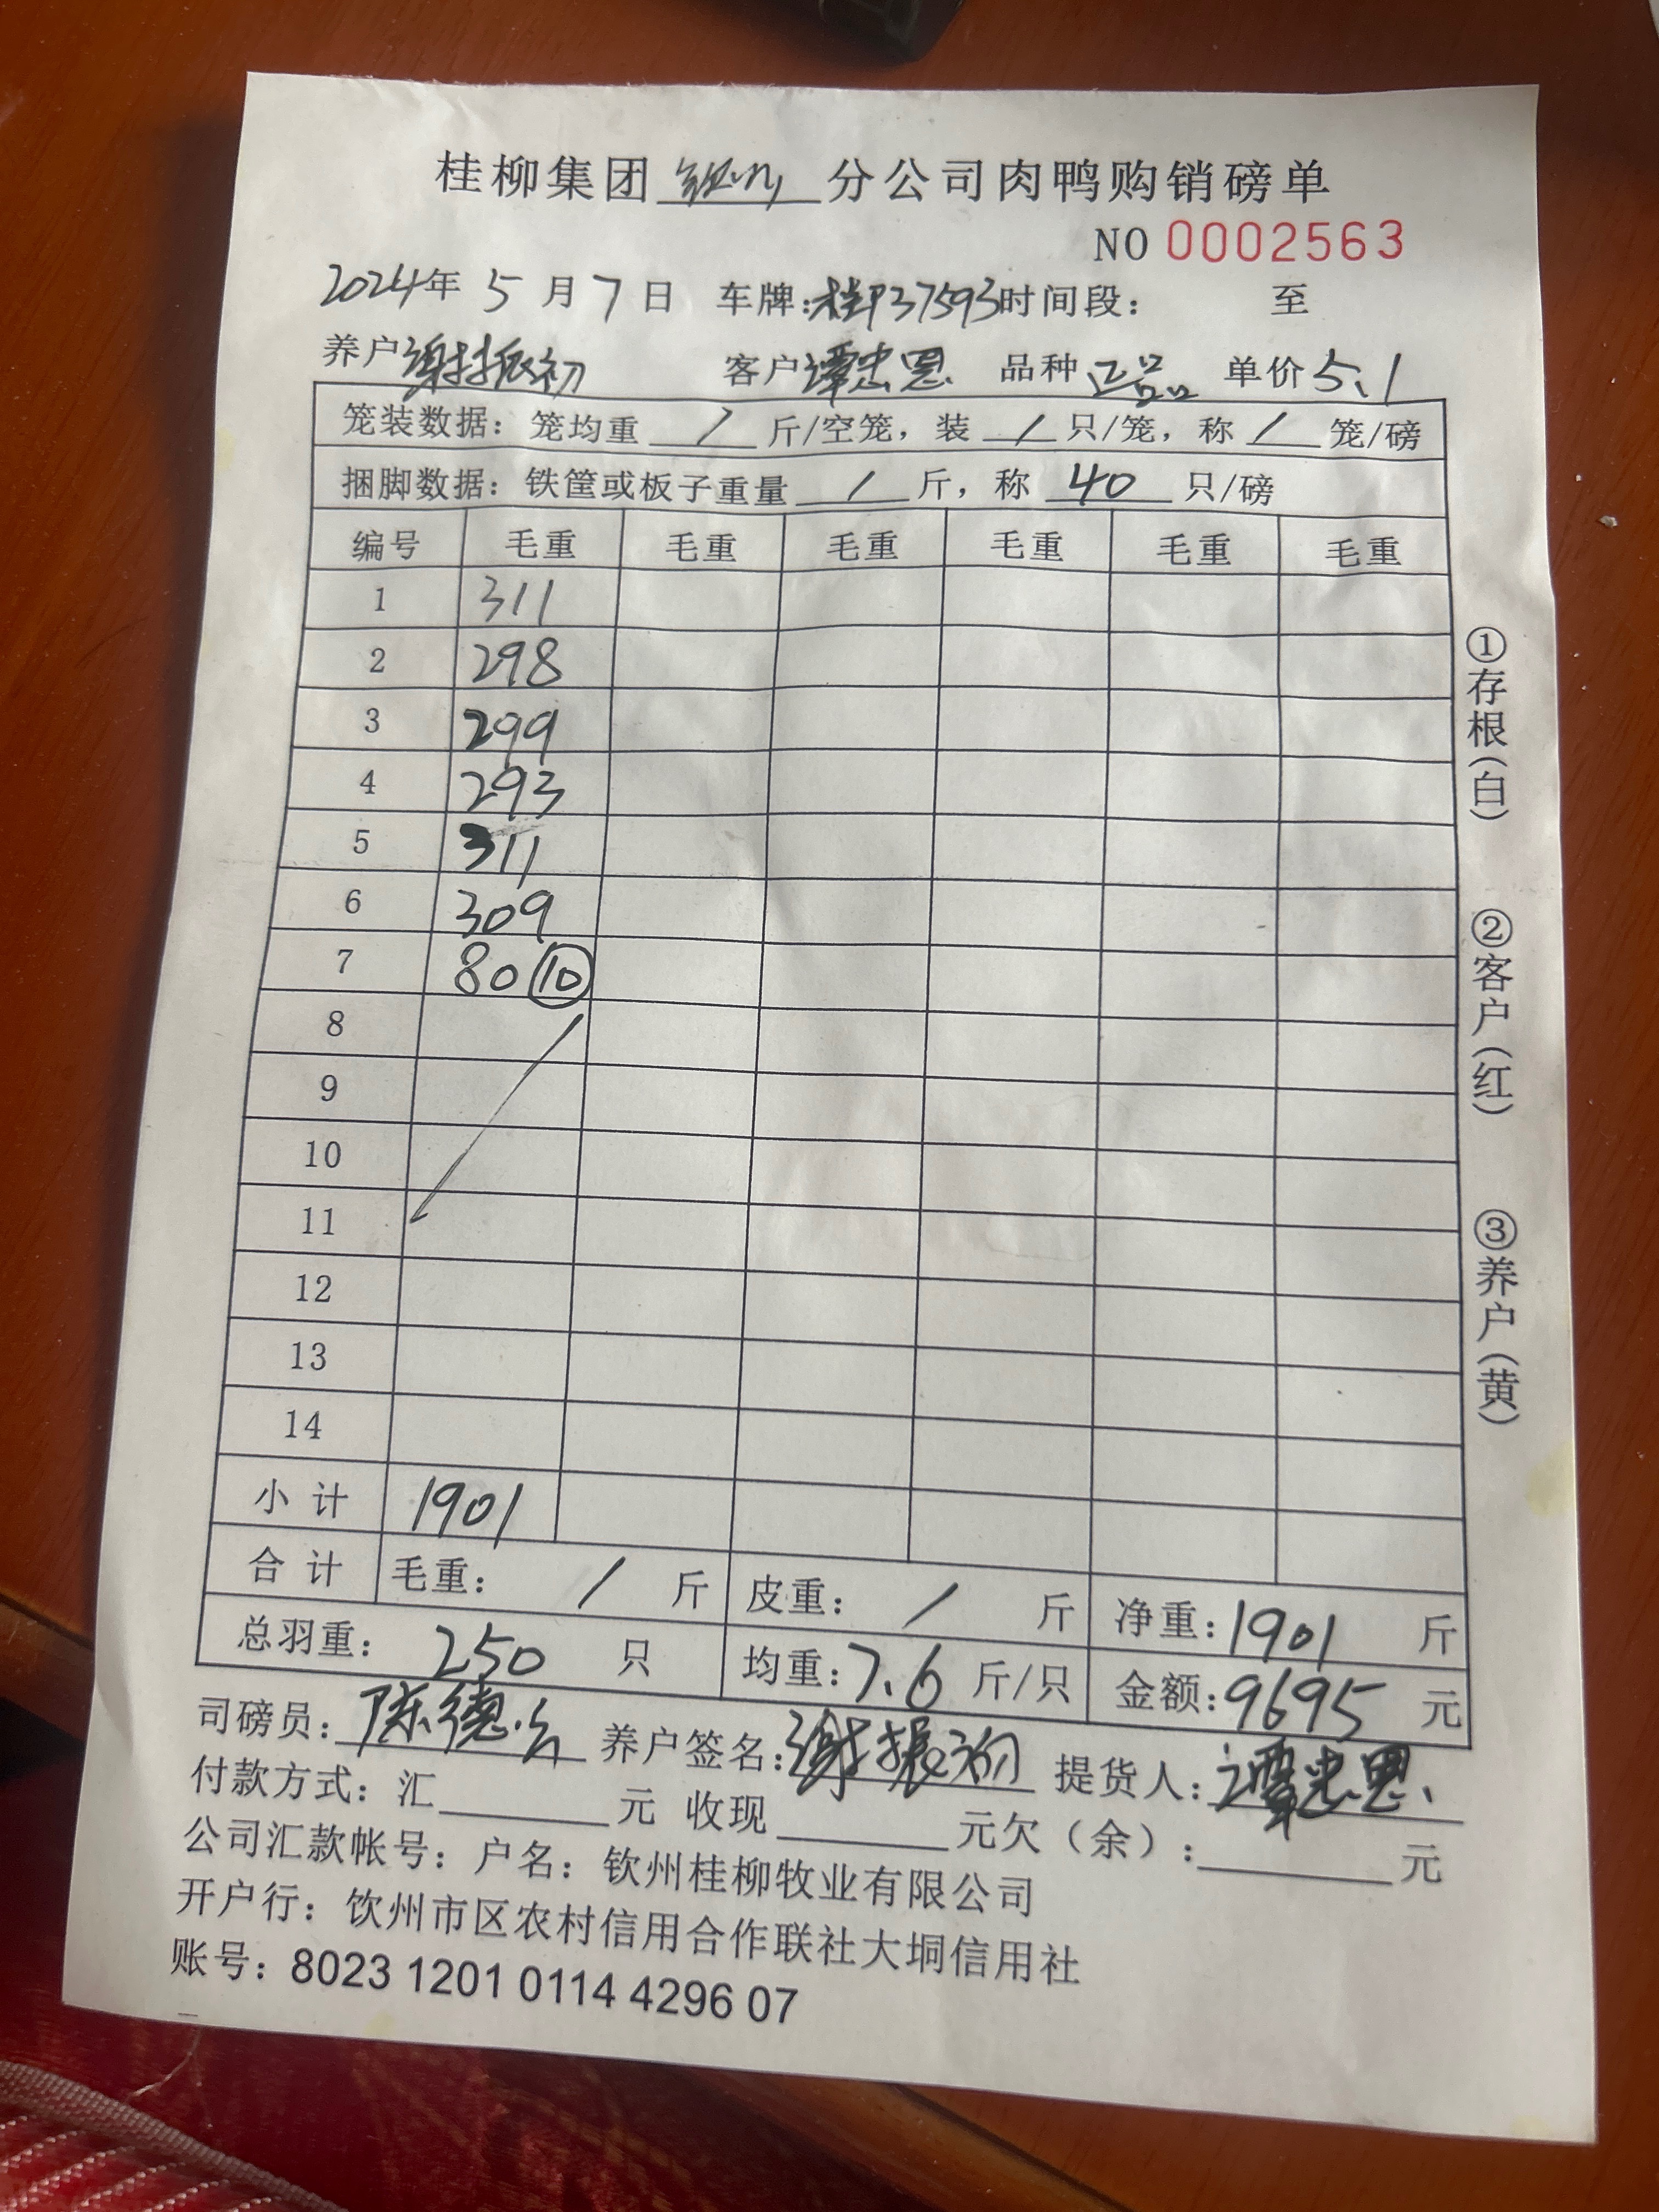 桂柳集团钦州分公司肉鸭购销磅单
NO 0002563
2024年 5 月 7 日 车牌:桂P37593时间段: 至
养户谢振初 客户谭忠恩 品种正品 单价5.1
笼装数据: 笼均重 / 斤/空笼, 装 / 只/笼, 称 / 笼/磅
捆脚数据: 铁筐或板子重量 / 斤, 称 40 只/磅
编号 毛重 毛重 毛重 毛重 毛重 毛重
1 311
2 298
3 299
4 293
5 311
6 309
7 80 ⑩
8
9
10
11
12
13
14
小 计 1901
合 计 毛重: / 斤 皮重: / 斤 净重:1901 斤
总羽重: 250 只 均重:7.6 斤/只 金额:9695 元
司磅员: 陈德 养户签名:谢振初 提货人:谭忠恩
付款方式: 汇 元 收现 元欠(余): 元
公司汇款帐号: 户名: 钦州桂柳牧业有限公司
开户行: 钦州市区农村信用合作联社大垌信用社
账号: 8023 1201 0114 4296 07
①存根(白) ②客户(红) ③养户(黄)